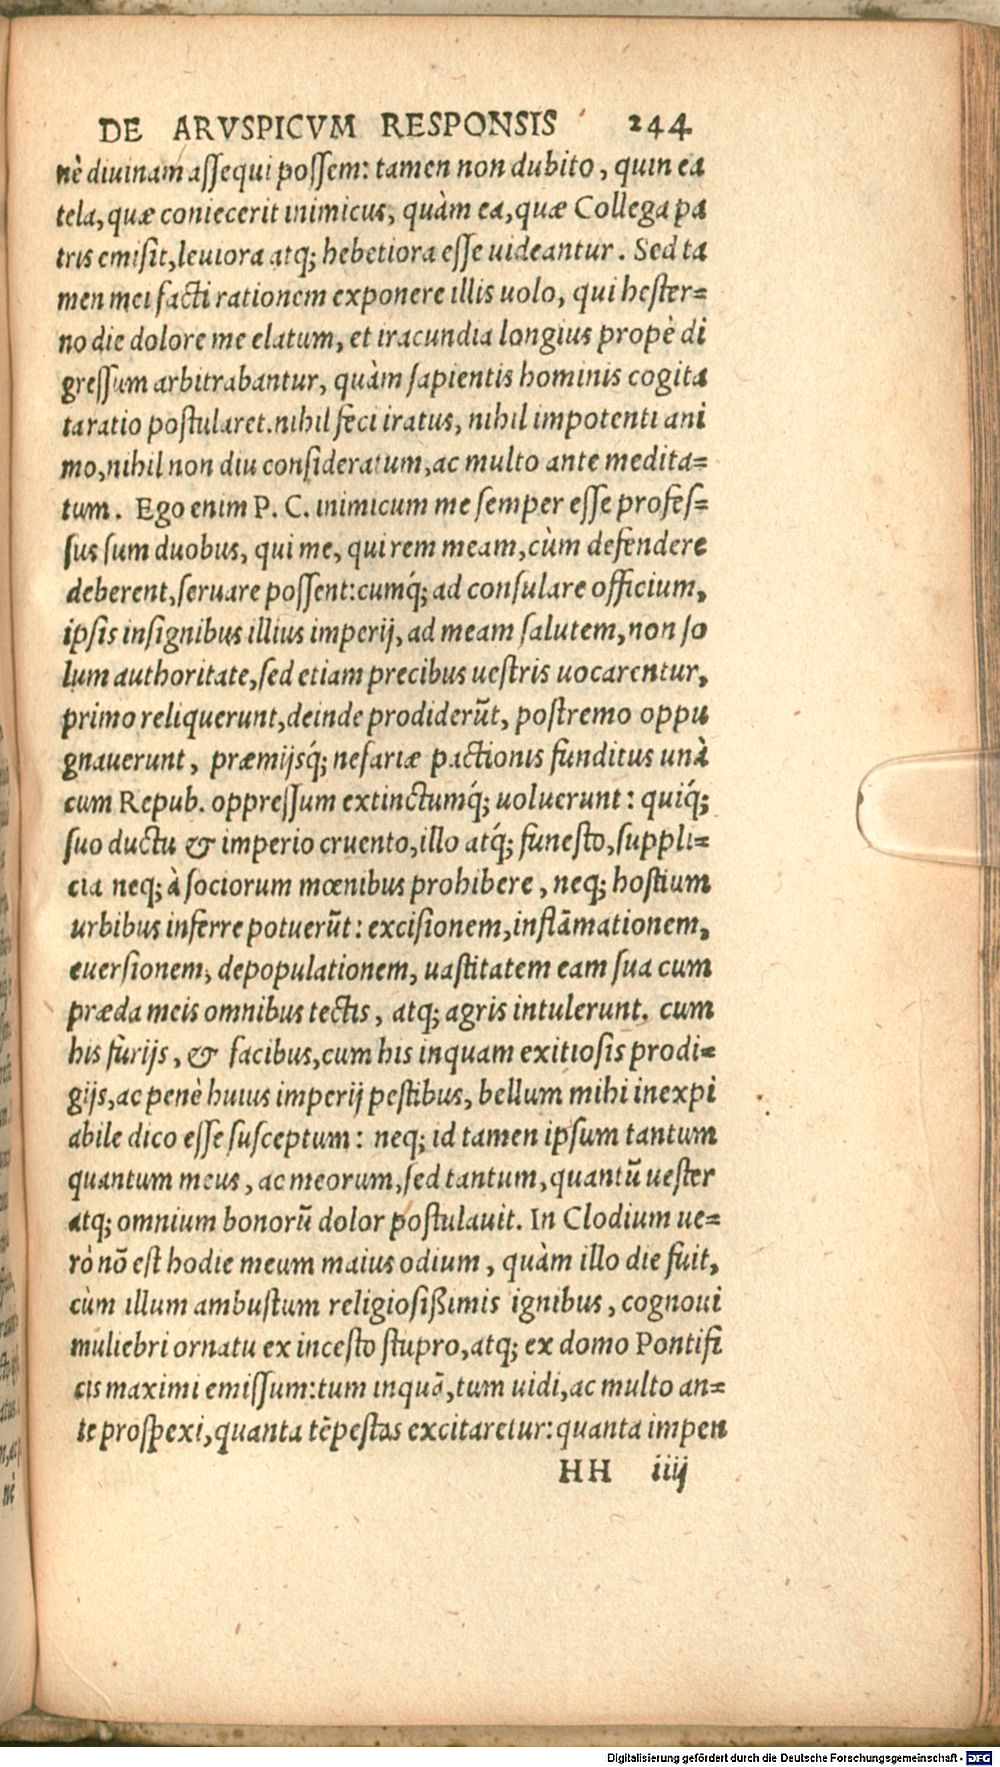 DE ARVSPICVM RESPONSIS 244
nè diuinam assequi possem: tamen non dubito, quin ea
tela, quæ coniecerit inimicus, quàm ea, quæ Collega pa
tris emisit, leuiora atq; hebetiora esse uideantur. Sed ta
men mei facti rationem exponere illis uolo, qui hester=
no die dolore me elatum, et iracundia longius propè di
gressum arbitrabantur, quàm sapientis hominis cogita
ta ratio postularet. nihil feci iratus, nihil impotenti ani
mo, nihil non diu consideratum, ac multo ante medita=
tum. Ego enim P. C. inimicum me semper esse profes=
sus sum duobus, qui me, qui rem meam, cùm defendere
deberent, seruare possent: cumq́; ad consulare officium,
ipsis insignibus illius imperij, ad meam salutem, non so
lum authoritate, sed etiam precibus uestris uocarentur,
primo reliquerunt, deinde prodiderũt, postremo oppu
gnauerunt, præmijsq́; nefariæ pactionis funditus unà
cum Repub. oppressum extinctumq́; uoluerunt: quiq́;
suo ductu & imperio cruento, illo atq́; funesto, suppli=
cia neq; à sociorum mœnibus prohibere, neq; hostium
urbibus inferre potuerũt: excisionem, inflãmationem,
euersionem, depopulationem, uastitatem eam sua cum
præda meis omnibus tectis, atq; agris intulerunt. cum
his furijs, & facibus, cum his inquam exitiosis prodi=
gijs, ac penè huius imperij pestibus, bellum mihi inexpi
abile dico esse susceptum: neq; id tamen ipsum tantum
quantum meus, ac meorum, sed tantum, quantũ uester
atq; omnium bonorũ dolor postulauit. In Clodium ue=
rò nõ est hodie meum maius odium, quàm illo die fuit,
cùm illum ambustum religiosißimis ignibus, cognoui
muliebri ornatu ex incesto stupro, atq; ex domo Pontifi
cis maximi emissum: tum inquã, tum uidi, ac multo an=
te prospexi, quanta tẽpestas excitaretur: quanta impen
HH iiij
Digitalisierung gefördert durch die Deutsche Forschungsgemeinschaft - DFG